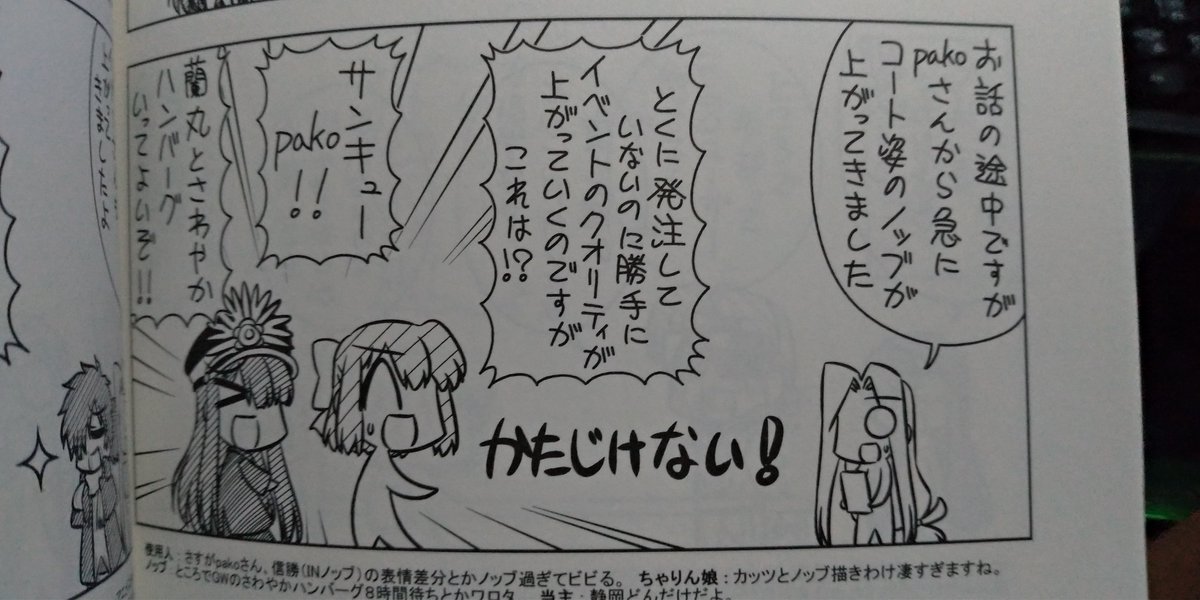 お話の途中ですが
pakoさんから急に
コート姿のノッブが
上がってきました
とくに発注して
いないのに勝手に
イベントのクオリティが
上がっていくのですが
これは!?
サンキュー
pako!!
蘭丸とさわやか
ハンバーグ
いってよいぞ!!
かたじけない!
使用人:さすがpakoさん、信勝(INノッブ)の表情差分とかノッブ過ぎてビビる。 ちゃりん娘:カッツとノッブ描きわけ凄すぎますね。
ノッブ ところでGWのさわやかハンバーグ8時間待ちとかワロタ 当主:静岡どんだけだよ。